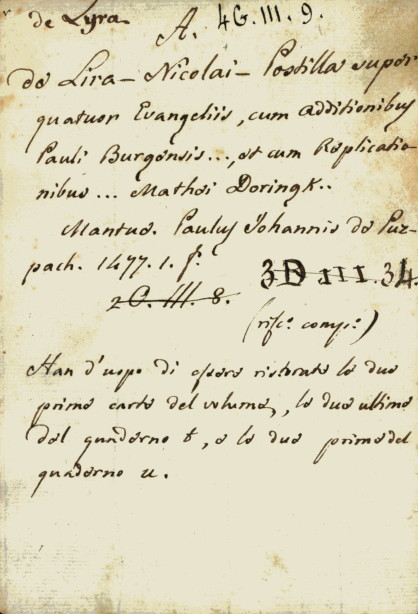 de Lyra
A. 4G.III.9.
de Lira - Nicolai - Postilla super
quatuor Evangeliis, cum additionibus
Pauli Burgensis..., et cum Replicatio-
nibus ... Mathei Doringk..
Mantue. Paulus Johannis de Puz-
pach. 1477. 1. f.
3D III.34.
2O.III.8.
(risc. comp.)
Han d'uopo di essere ristorate le due
prime carte del volume, le due ultime
del quaderno t, e le due prime del
quaderno u.